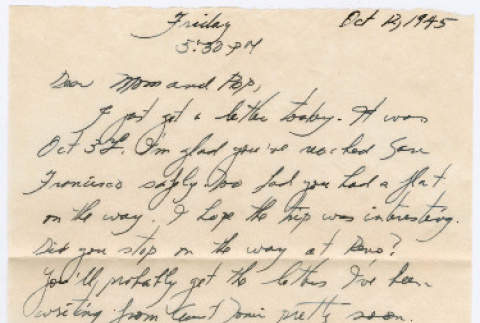 Friday Oct 12, 1945
5:30 PM
Dear Mom and Pop,
I just got a letter today. It was
Oct 3rd. I'm glad you've reached San
Francisco safely. Too bad you had a flat
on the way. I hope the trip was interesting.
Did you stop on the way at Reno?
You'll probably get the letters I've been
writing from pretty soon.